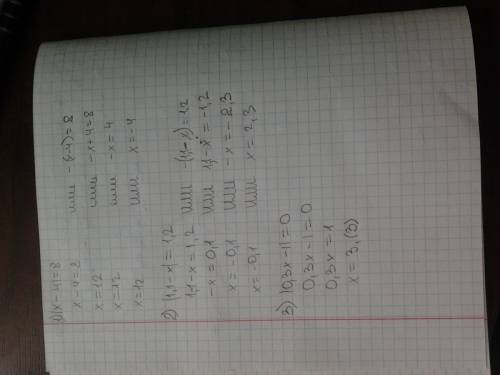 1) |x-4|=8
x-4=8 или -(x-4)=8
x=12 или -x+4=8
x=12 или -x=4
x=12 или x=-4
2) |1,1-x|=1,2
1,1-x=1,2 или -(1,1-x)=1,2
-x=0,1 или 1,1-x=-1,2
x=-0,1 или -x=-2,3
x=-0,1 или x=2,3
3) |0,3x-1|=0
0,3x-1=0
0,3x=1
x=3,(3)